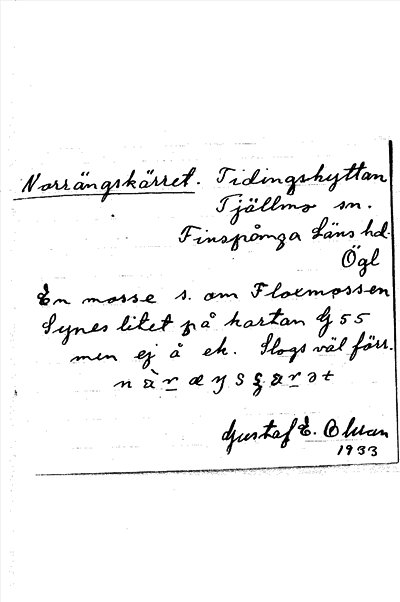 Norrängskärret. Tidingshyttan
Tjällmo sn.
Finspånga Läns hd.
Ögl
En mosse s. om Floxmossen
Synes litet på kartan G 55
men ej å ek. Slogs väl förr.
Gustaf E. Olson
1933